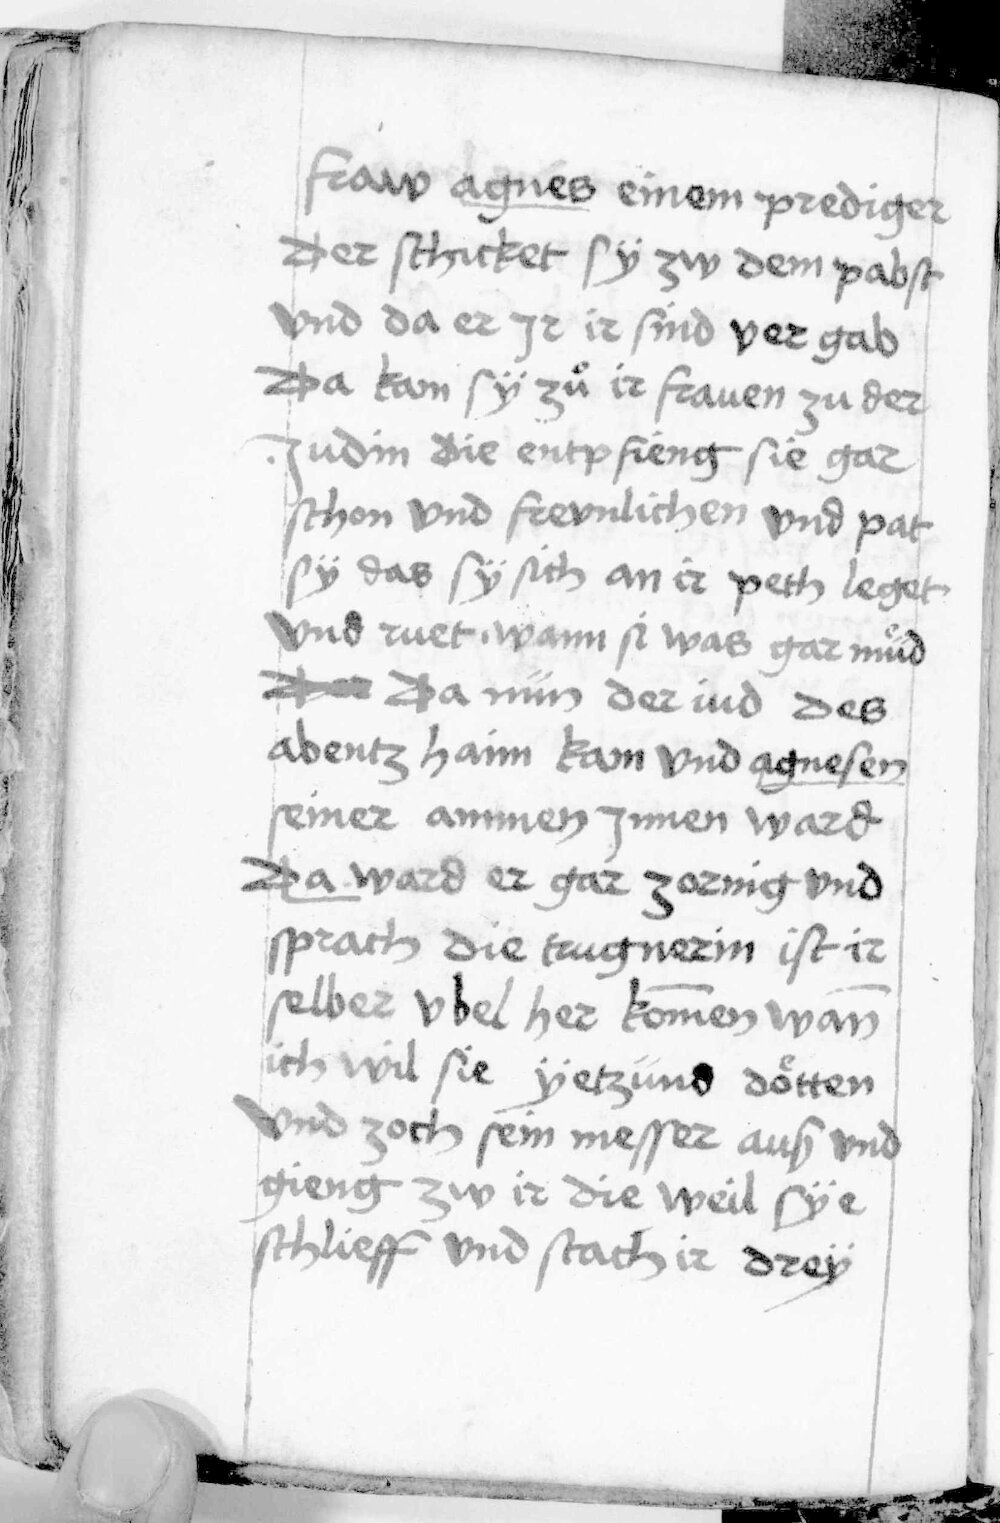 fraw agnes einem prediger
Der schicket sÿ zw dem pabst
vnd da er Jr ir sind ver gab
Da kam sÿ zuͦ ir frauen zu der
Judin die entpfieng sie gar
schon vnd frevnlichen vnd pat
sÿ das sÿ sich an ir peth leget
vnd ruet wann si was gar muͤd
Da nün der iud des
abentz haim kam vnd agnesen
seiner ammen Jnnen ward
Da ward er gar zornig vnd
sprach die trugnerin ist ir
selber vbel her kom̅en wan̅
ich wil sie ÿetzünd doͤtten
vnd zoch sein messer auß vnd
gieng zw ir die weil sÿe
schlieff vnd stach ir dreÿ